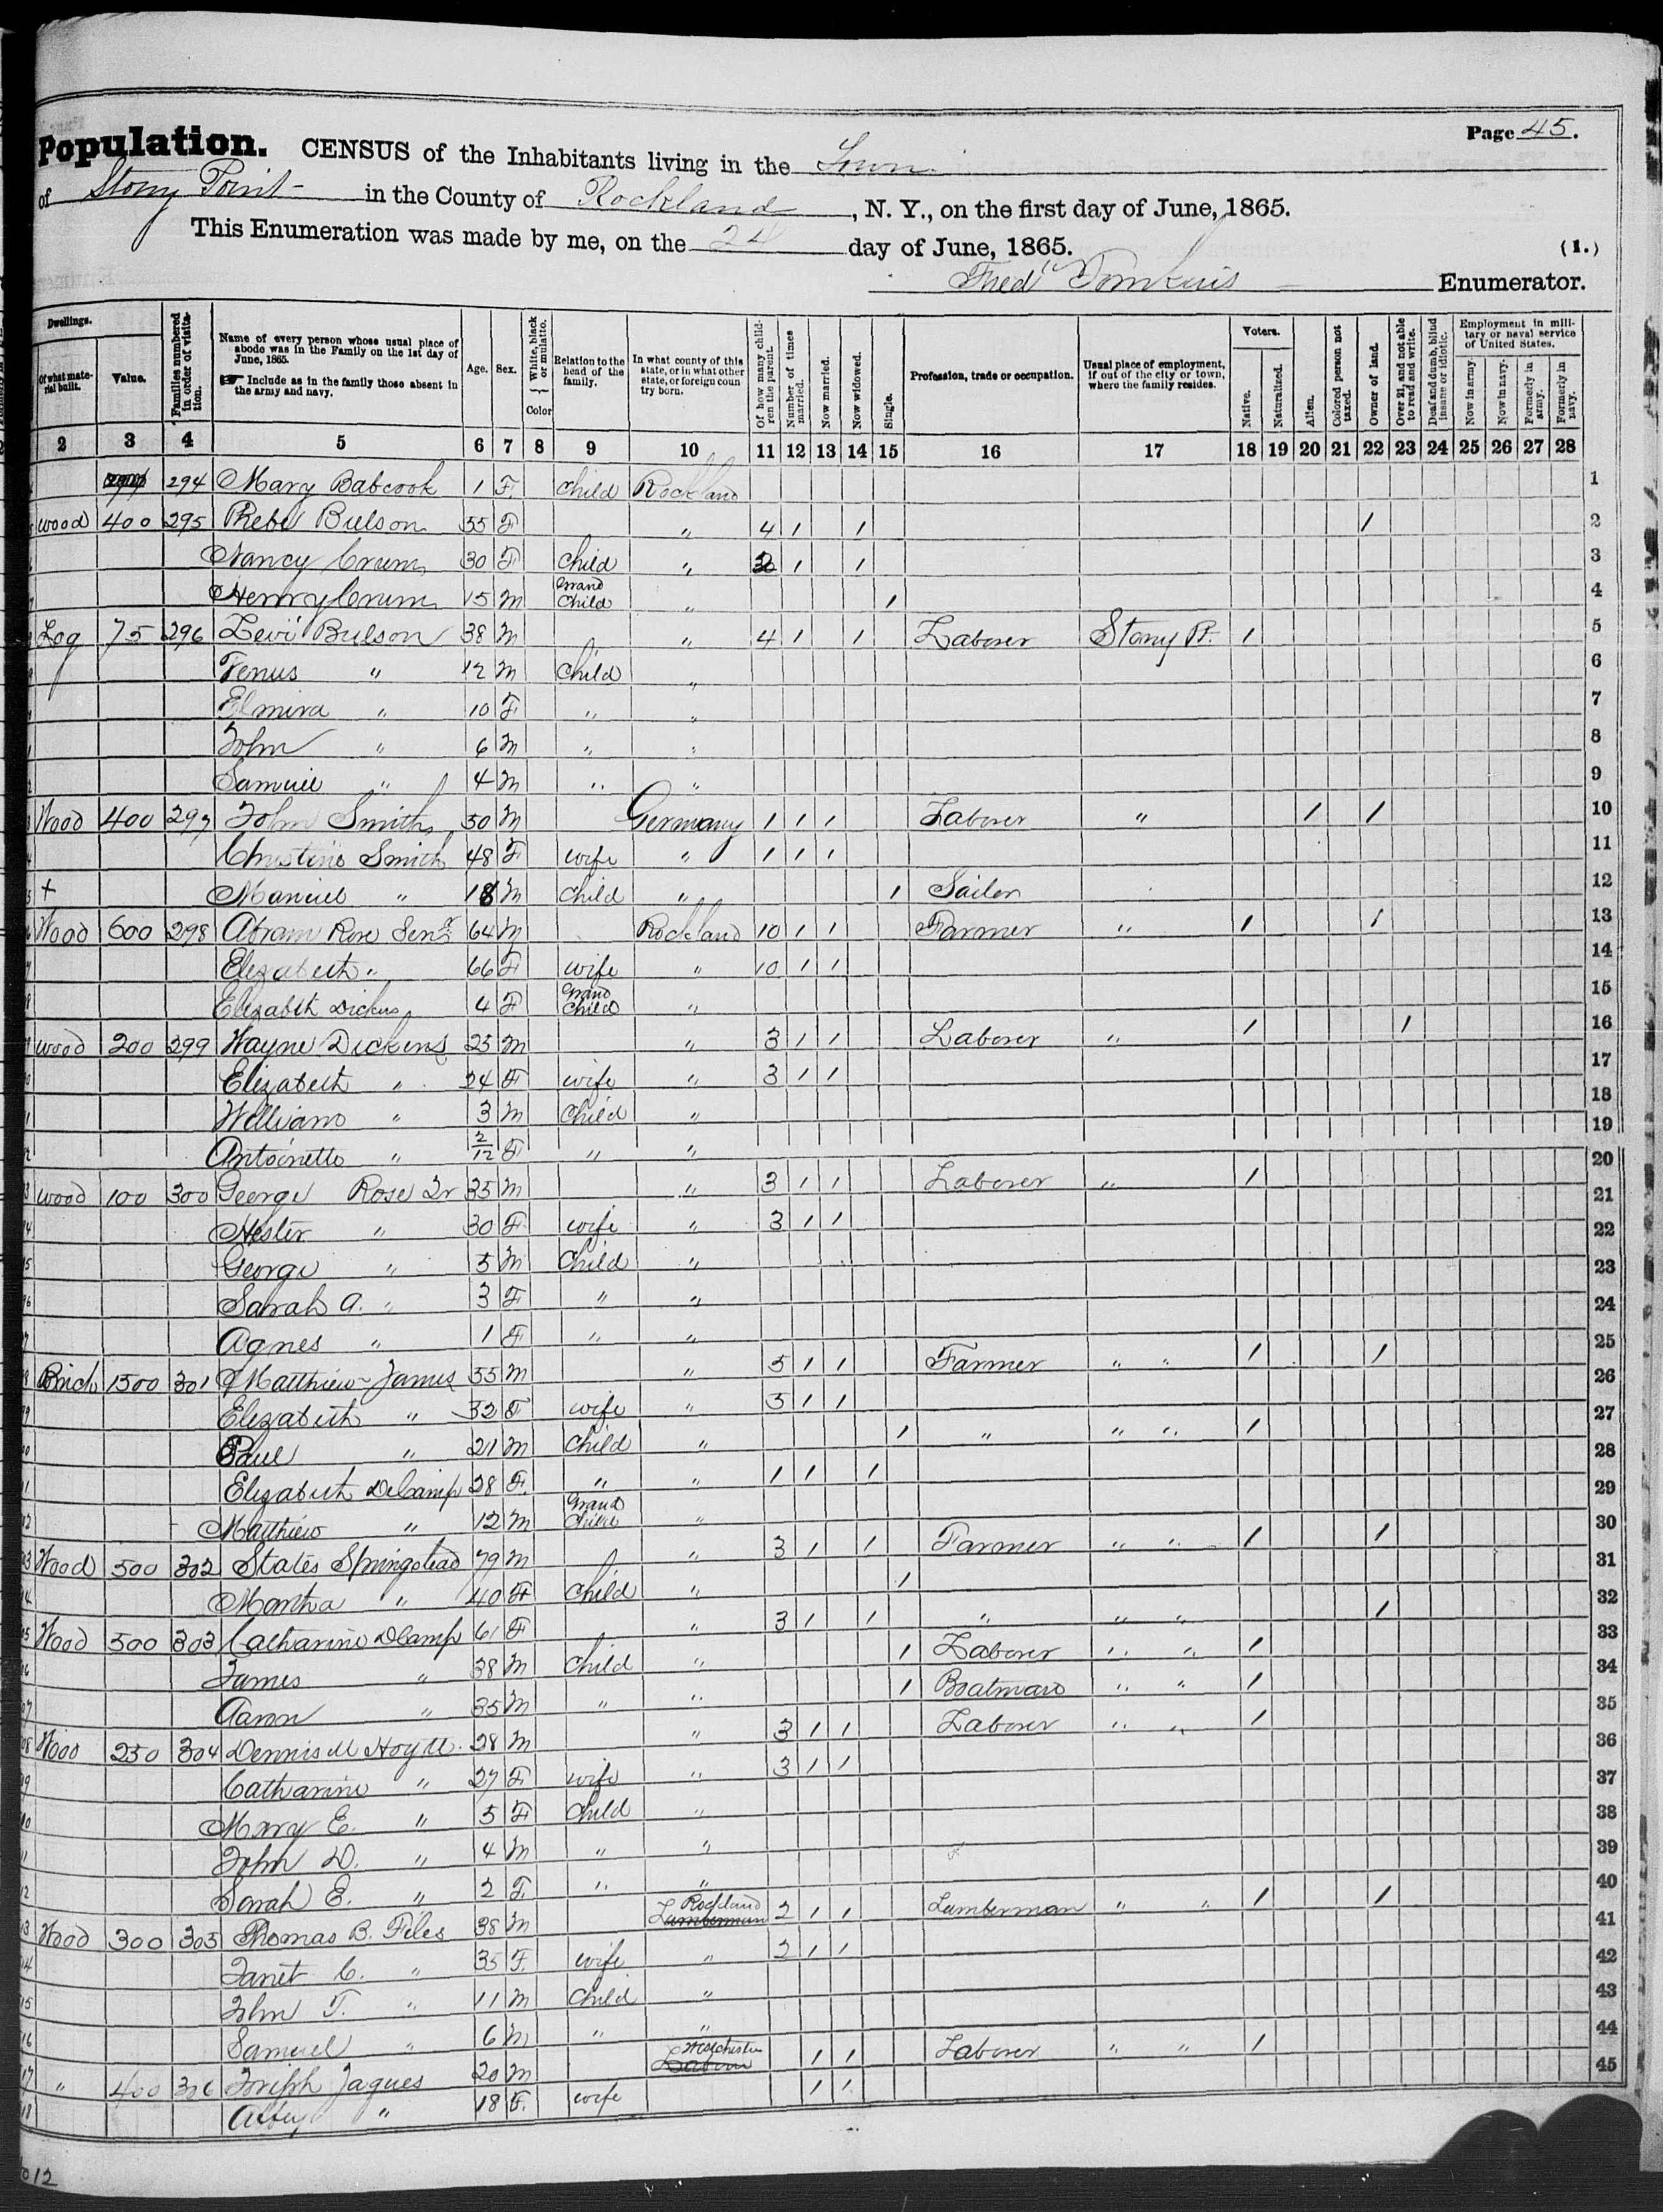 Page 45.
Population. CENSUS of the Inhabitants living in the Town
of Stony Point in the County of Rockland, N. Y., on the first day of June, 1865.
This Enumeration was made by me, on the 24 day of June, 1865. (1.)
Fred Tomkins Enumerator.
Dwellings. Of what material built. Value. Families numbered in order of visitation. Name of every person whose usual place of abode was in the Family on the 1st day of June, 1865. ☞ Include as in the family those absent in the army and navy. Age. Sex. White, black or mulatto. Color Relation to the head of the family. In what county of this state, or in what other state, or foreign coun try born. Of how many children the parent. Number of times married. Now married. Now widowed. Single. Profession, trade or occupation. Usual place of employment, if out of the city or town, where the family resides. Voters. Native. Naturalized. Alien. Colored person not taxed. Owner of land. Over 21, and not able to read and write. Deaf and dumb, blind insane or idiotic. Employment in military or naval service of United States. Now in army. Now in navy. Formerly in army. Formerly in navy.
2 3 4 5 6 7 8 9 10 11 12 13 14 15 16 17 18 19 20 21 22 23 24 25 26 27 28
294 Mary Babcook 1 F. Child Rockland 1
wood 400 295 Phebe Bulson 55 F " 4 1 1 1 2
Nancy Crum 30 F Child " 1 1 3
Henry Crum 15 M Grand Child " 1 4
Log 75 296 Levi Bulson 38 M " 4 1 1 Laborer Stony Pt. 1 5
Fenus " 12 M Child " 6
Elmira " 10 F " " 7
John " 6 M " " 8
Samuel " 4 M " " 9
Wood 400 297 John Smith 50 M Germany 1 1 1 Laborer " 1 1 10
Christine Smith 48 F wife " 1 1 1 11
+ Manuel " 18 M Child " 1 Sailor 12
Wood 600 298 Abram Rose Senr 64 M Rockland 10 1 1 Farmer " 1 1 13
Elizabeth " 66 F wife " 10 1 1 14
Elizabeth Dickens 4 F Grand Child " 15
wood 200 299 Wayne Dickens 25 M " 3 1 1 Laborer " 1 1 16
Elizabeth " 24 F wife " 3 1 1 17
William " 3 M Child " 18
Antoinette " 2/12 F " " 19
wood 100 300 George Rose Jr 35 M " 3 1 1 Laborer " 1 20
Hester " 30 F wife " 3 1 1 21
George " 5 M Child " 22
Sarah A. " 3 F " " 23
Agnes " 1 F " " 24
Brick 1500 301 Matthew James 55 M " 5 1 1 Farmer " " 1 1 25
Elizabeth " 52 F wife " 5 1 1 26
Paul " 21 M Child " 1 " " " 1 27
Elizabeth DeCamp 28 F. " " 1 1 1 28
Matthew " 12 M Grand Child " 29
Wood 500 302 States Springstead 79 M " 3 1 1 Farmer " " 1 1 30
Martha " 40 F Child " 1 31
Wood 500 303 Catharine DCamp 61 F " 3 1 1 " " " 1 32
James " 38 M Child " 1 Laborer " " 1 33
Aaron " 35 M " " 1 Boatman " " 1 34
Wood 250 304 Dennis M Hoytt 28 M " 3 1 1 Laborer " " 1 35
Catharine " 27 F wife " 3 1 1 36
Mary E. " 5 F Child " 37
John D. " 4 M " " 38
Sarah E. " 2 F. " " 39
Wood 300 305 Thomas B. Files 38 M Rockland Lumberman 2 1 1 Lumberman " " 1 1 40
Janet C. " 35 F. wife " 2 1 1 41
John T. " 11 M Child " 42
Samuel " 6 M " " 43
" 400 306 Joseph Jaques 20 M Westchester Laborer 1 1 Laborer " " 1 44
Abbey " 18 F. wife 1 1 45
12